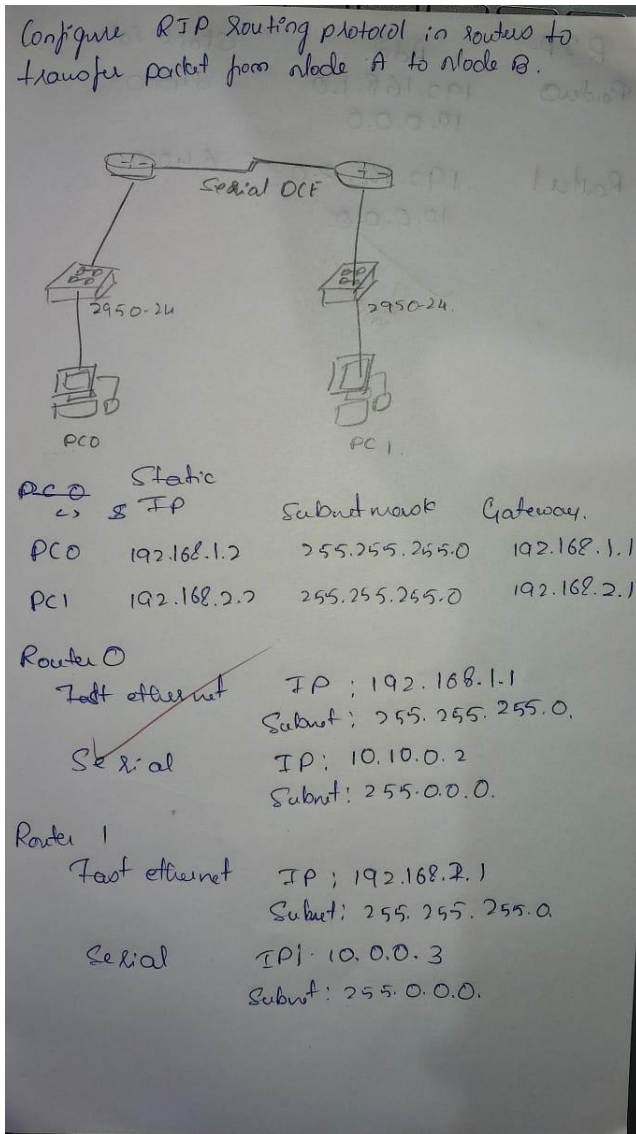 Configure RIP Routing protocol in routers to
transfer packet from Node A to Node B.
Serial DCE
2950-24
2950-24.
PC0
PC 1.
PC 0 Static
IP Subnet mask Gateway.
PC0 192.168.1.2 255.255.255.0 192.168.1.1
PC1 192.168.2.2 255.255.255.0 192.168.2.1
Router 0
Fast ethernet IP : 192.168.1.1
Subnet : 255.255.255.0.
Serial IP : 10.10.0.2
Subnet : 255.0.0.0.
Router 1
Fast ethernet IP : 192.168.2.1
Subnet : 255.255.255.0.
Serial IP : 10.0.0.3
Subnet : 255.0.0.0.